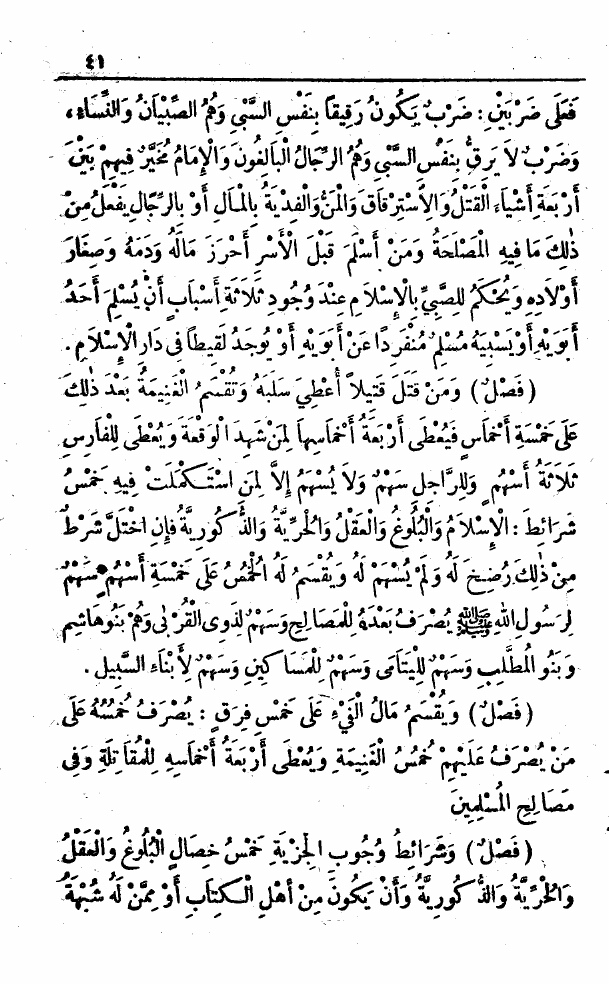 ٤١
فَعَلَى ضَرْبَيْنِ : ضَرْبٌ يَكُونُ رَقِيقاً بِنَفْسِ السَّبْيِ وَهُمُ الصِّبْيَانُ وَالنِّسَاءُ ،
وَضَرْبٌ لاَ يَرِقُّ بِنَفْسِ السَّبْيِ وَهُمُ الرِّجَالُ الْبَالِغُونَ وَالْإِمَامُ مُخَيَّرٌ فِيهِمْ بَيْنَ
أَرْبَعَةِ أَشْيَاءَ الْقَتْلُ وَالِاسْتِرْقَاقُ وَالْمَنُّ وَالْفِدْيَةُ بِالْمَالِ أَوْ بِالرِّجَالِ يَفْعَلُ مِنْ
ذٰلِكَ مَا فِيهِ الْمَصْلَحَةُ وَمَنْ أَسْلَمَ قَبْلَ الْأَسْرِ أَحْرَزَ مَالَهُ وَدَمَهُ وَصِغَارَ
أَوْلَادِهِ وَيُحْكَمُ لِلصَّبِيِّ بِالْإِسْلَامِ عِنْدَ وُجُودِ ثَلَاثَةِ أَسْبَابٍ أَنْ يُسْلِمَ أَحَدُ
أَبَوَيْهِ أَوْ يَسْبِيَهُ مُسْلِمٌ مُنْفَرِدًا عَنْ أَبَوَيْهِ أَوْ يُوجَدُ لَقِيطاً فِى دَارِ الْإِسْلَامِ .
( فَصْلٌ ) وَمَنْ قَتَلَ قَتِيلاً أُعْطِيَ سَلَبَهُ وَتُقْسَمُ الْغَنِيمَةُ بَعْدَ ذٰلِكَ
عَلَى خَمْسَةِ أَخْمَاسٍ فَيُعْطَى أَرْبَعَةُ أَخْمَاسِهَا لِمَنْ شَهِدَ الْوَقْعَةَ وَيُعْطَى لِلْفَارِسِ
ثَلَاثَةُ أَسْهُمٍ وَلِلرَّاجِلِ سَهْمٌ وَلَا يُسْهَمُ إِلاَّ لِمَنِ اسْتَكْمَلَتْ فِيهِ خَمْسُ
شَرَائِطَ : الْإِسْلَامُ وَالْبُلُوغُ وَالْعَقْلُ وَالْحُرِّيَّةُ وَالذُّكُورِيَّةُ فَإِنِ اخْتَلَّ شَرْطٌ
مِنْ ذٰلِكَ رُضِخَ لَهُ وَلَمْ يُسْهَمْ لَهُ وَيُقْسَمُ لَهُ الْخُمُسُ عَلَى خَمْسَةِ أَسْهُمٍ سَهْمٌ
لِرَسُولِ اللهِ ﷺ يُصْرَفُ بَعْدَهُ لِلْمَصَالِحِ وَسَهْمٌ لِذَوِى الْقُرْبَى وَهُمْ بَنُو هَاشِمٍ
وَبَنُو الْمُطَّلِبِ وَسَهْمٌ لِلْيَتَامَى وَسَهْمٌ لِلْمَسَاكِينِ وَسَهْمٌ لِأَبْنَاءِ السَّبِيلِ .
( فَصْلٌ ) وَيُقْسَمُ مَالُ الْفَيْءِ عَلَى خَمْسِ فِرَقٍ : يُصْرَفُ خُمُسُهُ عَلَى
مَنْ يُصْرَفُ عَلَيْهِمْ خُمُسُ الْغَنِيمَةِ وَيُعْطَى أَرْبَعَةُ أَخْمَاسِهِ لِلْمُقَاتِلَةِ وَفِى
مَصَالِحِ الْمُسْلِمِينَ
( فَصْلٌ ) وَشَرَائِطُ وُجُوبِ الْجِزْيَةِ خَمْسُ خِصَالٍ الْبُلُوغُ وَالْعَقْلُ
وَالْحُرِّيَّةُ وَالذُّكُورِيَّةُ وَأَنْ يَكُونَ مِنْ أَهْلِ الْكِتَابِ أَوْ مِمَّنْ لَهُ شُبْهَةُ